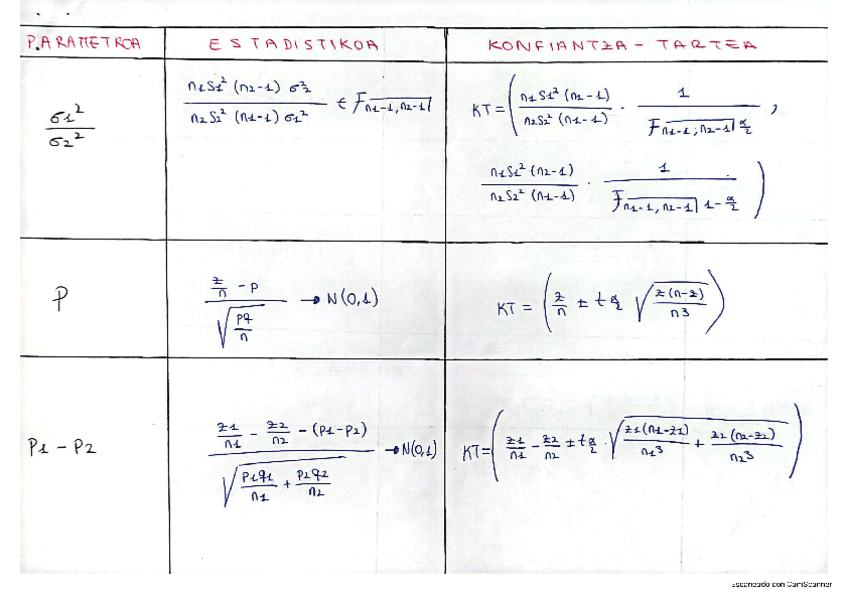 PARAMETROA ESTADISTIKOA KONFIANTZA - TARTEA
σ1²/σ2² n1S1² (n2-1) σ2² / n2S2² (n1-1) σ1² ∈ F n1-1, n2-1 KT = ( n1S1² (n2-1) / n2S2² (n1-1) · 1 / F n1-1; n2-1 α/2 ,
n1S1² (n2-1) / n2S2² (n1-1) · 1 / F n1-1, n2-1 1-α/2 )
P (z/n - P) / √(pq/n) → N(0,1) KT = ( z/n ± t α/2 √(z(n-z)/n³) )
P1 - P2 (z1/n1 - z2/n2 - (P1-P2)) / √(P1q1/n1 + P2q2/n2) → N(0,1) KT = ( z1/n1 - z2/n2 ± t α/2 · √(z1(n1-z1)/n1³ + z2(n2-z2)/n2³) )
Escaneado con CamScanner